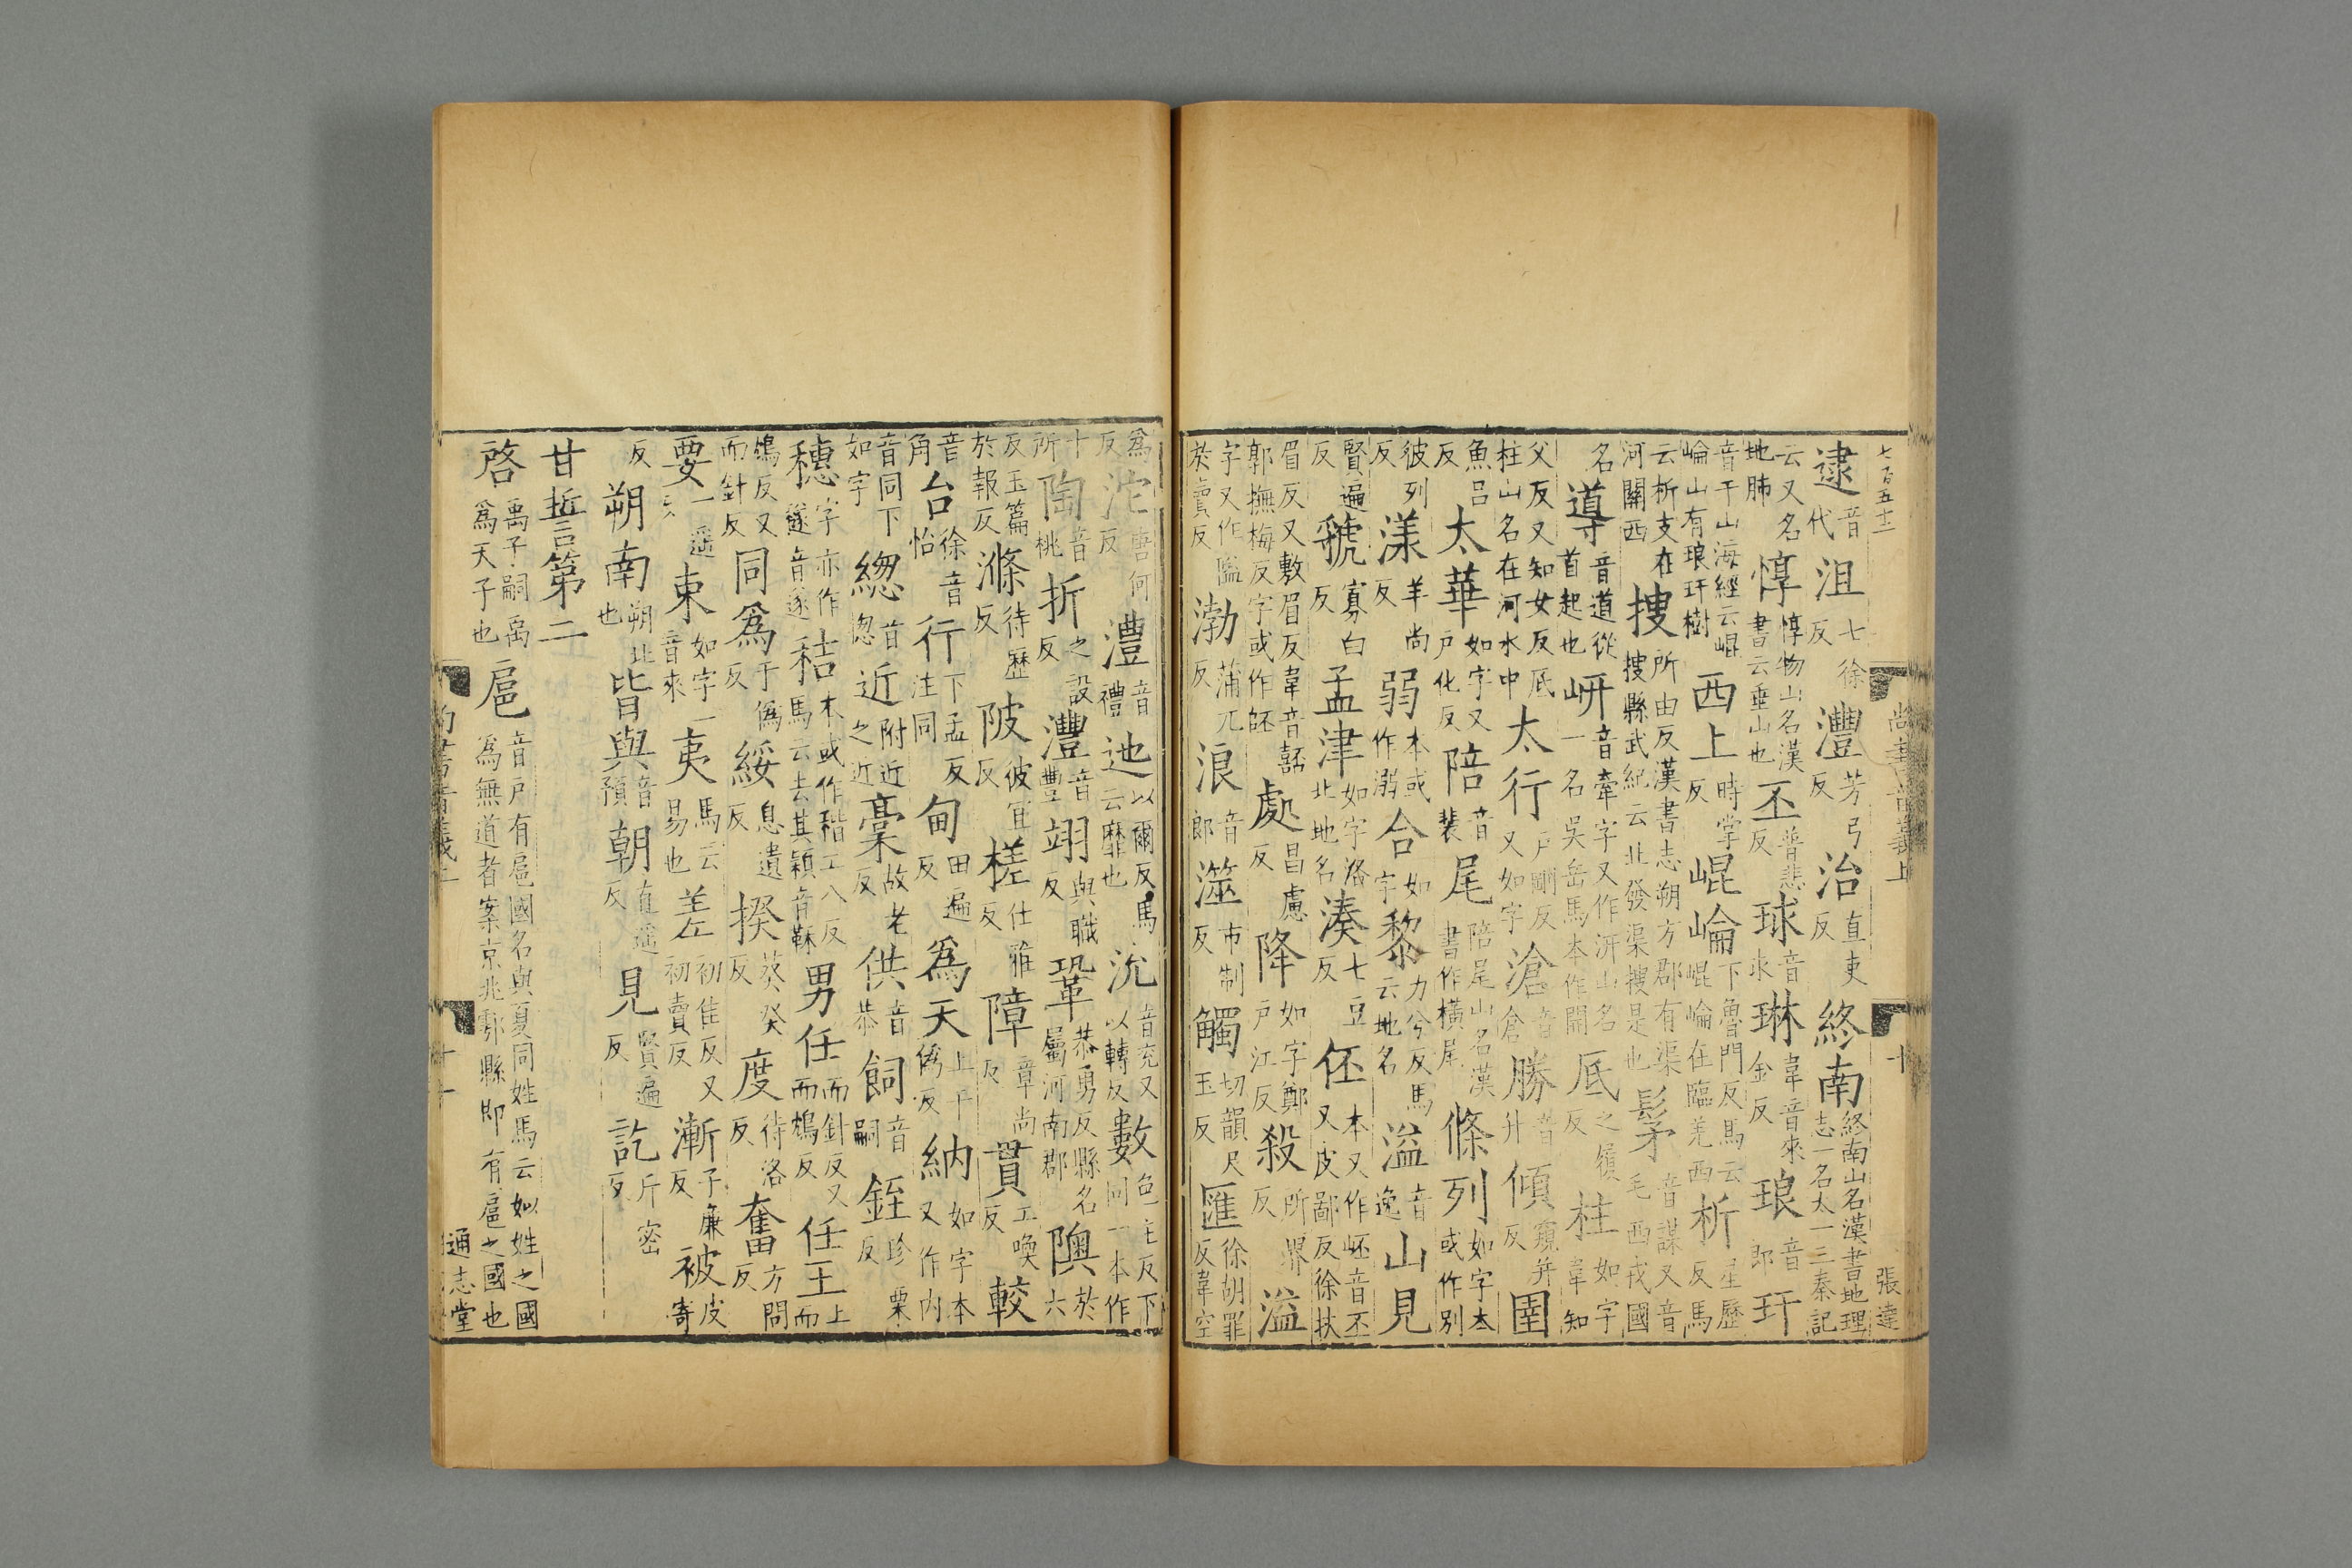 七百五十二
張達
逮音代沮七徐反灃芳弓反治直吏反終南終南山名漢書地理志一名太一三秦記
云又名地肺惇惇物山名漢書云垂山也丕普悲反球音求琳韋音來金反琅音郎玕
音干山海經云崐崘山有琅玕樹西上時掌反崐崘下魯門反馬云崐崘在臨羌西析星歷反馬
云析支在河關西搜所由反漢書志朔方郡有渠搜縣武紀云北發渠搜是也髳音謀又音毛西戎國
名導音道從首起也岍音牽字又作汧山名一名吳岳馬本作開厎之履反柱如字韋知
父反又知女反厎柱山名在河水中太行戶剛反又如字滄音倉勝音升傾窺井反圉
魚呂反太華如字又戶化反陪音裴尾陪尾山名漢書作橫尾條列如字本或作別
彼列反漾羊尚反弱本或作溺合如字黎力兮反馬云地名溢音逸山見
賢遍反虢寡白反孟津如字洛北地名湊七豆反伾本又作岯音丕又皮鄙反徐扶
眉反又敷眉反韋音嚭郭撫梅反字或作處昌慮反降如字鄭戶江反殺所界反溢
字又作隘於賣反渤蒲兀反浪音郎澨市制反觸切韻尺玉反匯徐胡罪反韋空
尚書音義上 十
爲反沱唐何反澧音禮迆以爾反馬云靡也沇音兖又以轉反數色主反下同一本作
十所陶音桃折之設反灃音豐翊與職反鞏恭勇反縣名屬河南郡隩於六
反玉篇於報反滌待歷反陂彼宜反槎仕雅反障章尚反貫工喚反較
音角台徐音怡行下孟反注同甸田遍反爲天上于僞反納如字本又作内
音同下如字緫音惚近附近之近稾故老反供音恭飼音嗣銍珍栗反
穗字亦作音遂秸本或作稭工八反馬云去其穎音鞂男任而針反又而鴆反任王上而
鴆反又而針反同爲于僞反綏息遺反揆葵癸反度待洛反奮方問反
要一遥反束如字一音來夷馬云易也差初佳反又初賣反漸子廉反被皮寄
反朔南朔北也皆與音預朝直遥反見賢遍反訖斤密反
甘誓第二
啓禹子嗣禹爲天子也扈音戶有扈國名與夏同姓馬云姒姓之國爲無道者案京兆鄠縣即有扈之國也
通志堂